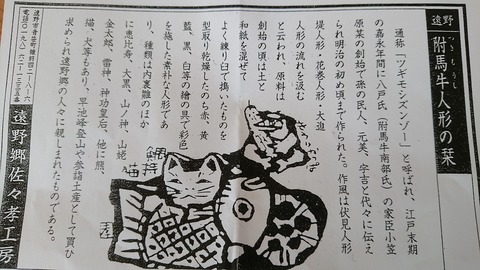 遠野
附馬牛人形の栞
つきもうし
通称「ツギモンズンゾー」と呼ばれ、江戸末期
の嘉永年間に八戸氏（附馬牛南部氏）の家臣小笠
原某の創始で孫の民人、元美、宇吉と代々に伝え
られ明治の初め頃まで作られた。作風は伏見人形
堤人形・花巻人形・大迫
人形の流れを汲む
と云われ、原料は
創始の頃は土と
和紙を混ぜて
よく練り臼で搗いたものを
型取り乾燥したのち赤、黄
藍、黒、白等の絵の具で彩色
を施した素朴な人形であ
り、種類は内裏雛のほか
に恵比寿、大黒、山ノ神、山姥
金太郎、雷神、神功皇后、他に熊、
猫、犬等もあり、早池峰登山や参詣土産として買ひ
求められ遠野郷の人々に親しまれたものである。
遠野郷佐々孝工房